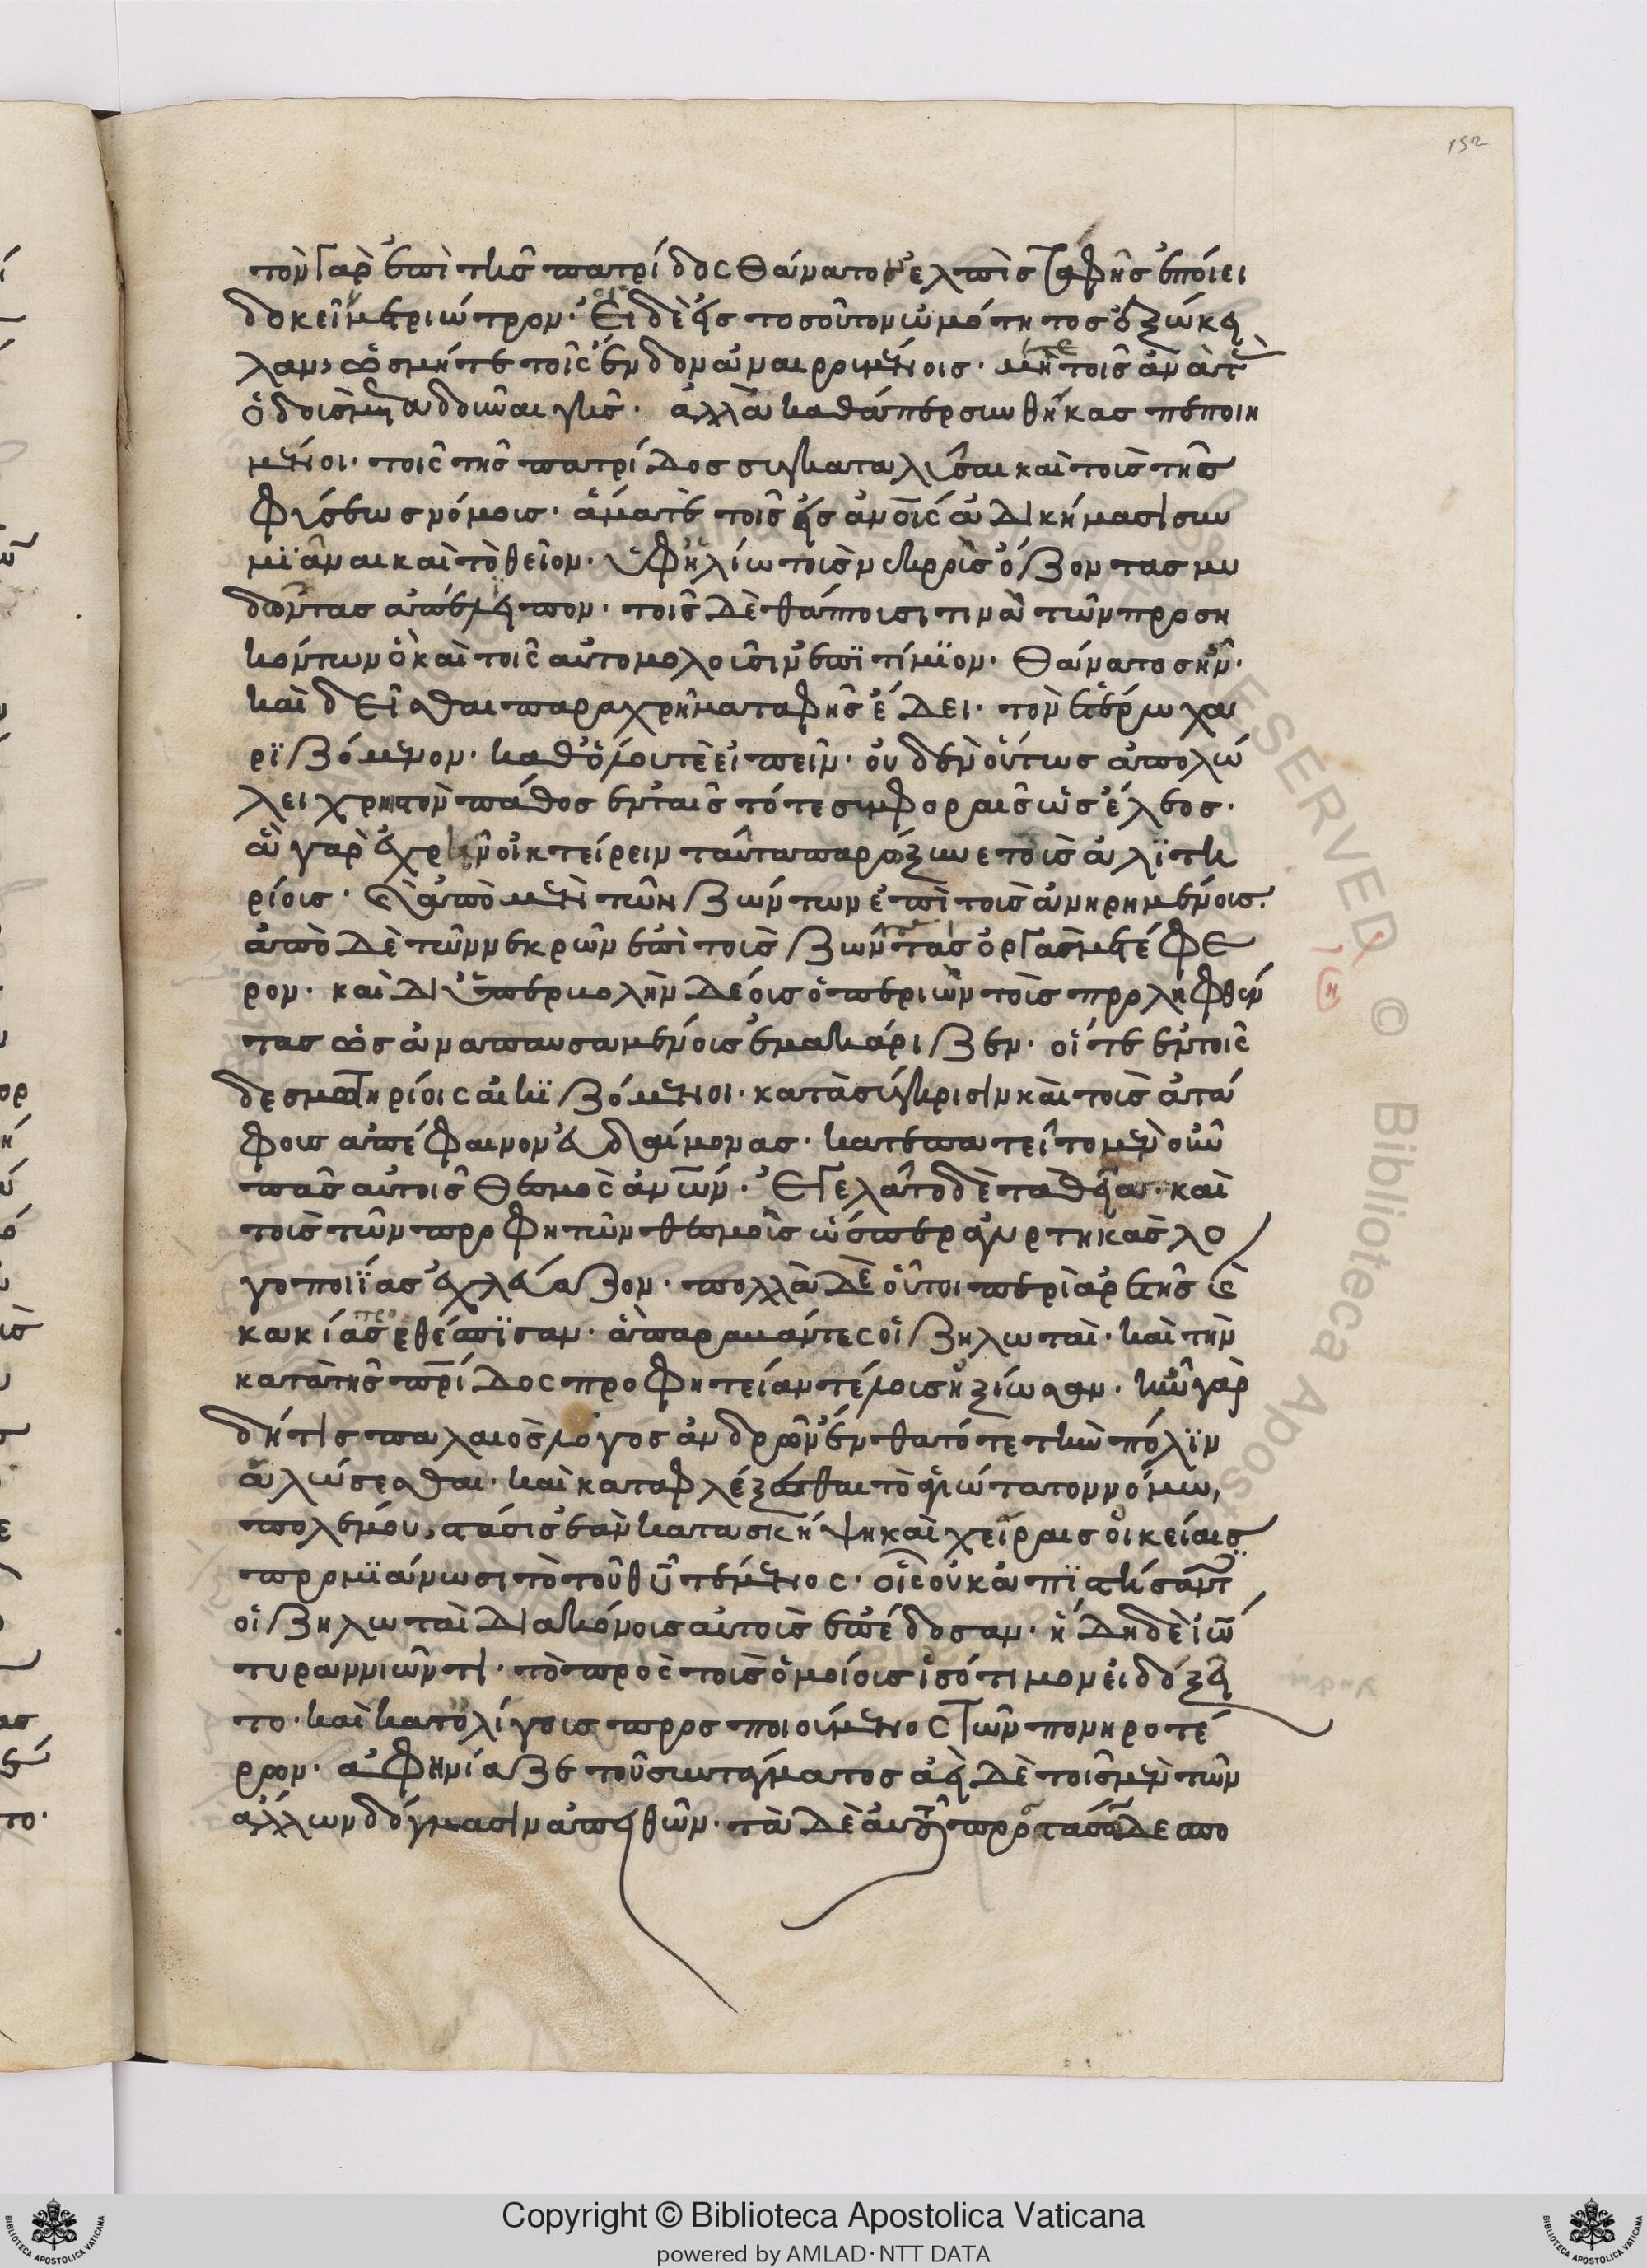 τὸν γὰρ ἐπὶ τῆς πατρίδος θάνατον ἐλπὶς ταφῆς ἐποίει
δοκεῖν μετριώτερον· Οἱ δὲ εἰς τοσοῦτον ὠμότητος ἐξώκει
λαν, ὡς μήτε τοῖς ἔνδον ἀναιρουμένοις· μήτε τοῖς ἀνὰ τὰς
ὁδοὺς μεταδοῦναι γῆς· ἀλλὰ καθάπερ συνθήκας πεποιη
μένοι· τοῖς τῆς πατρίδος συγκαταλῦσαι καὶ τοὺς τῆς
φύσεως νόμους· ἅμα τε τοῖς εἰς ἀνοῦς ἀδικήμασιν συν
μϊᾶναι καὶ τὸ θεῖον· ὑφ' ἡλίω τοὺς νεκροὺς ὄζοντας μυ
δῶντας ἀπέλειπον· τοῖς δὲ θάπτουσι τινὰ τῶν προση
κόντων ὃ καὶ τοῖς αὐτομολοῦσιν ἐπϊτίμϊον· θάνατος ἦν·
καὶ δεῖσθαι παραχρῆμα ταφῆς ἔδει· τὸν ἑτέρω χα
ρϊζόμενον· καθόλου τὲ εἰπεῖν· οὐδὲν οὕτως ἀπολώ
λει χρηστὸν πάθος ἐν ταῖς τότε συμφοραῖς ὡς ἔλεος·
ἃ γὰρ ἐχρῆν οἰκτείρειν ταῦτα παρώξυνε τοὺς ἀλϊτη
ρίους· καὶ ἀπὸ μὲν τῶν ζώντων ἐπὶ τοὺς ἀνηρημένους·
ἀπὸ δὲ τῶν νεκρῶν ἐπὶ τοὺς ζῶντας τὰς ὀργὰς μετέφε
ρον· καὶ δι' ὑπερβολὴν δέους ὁ περιὼν τοὺς προληφθέν
τας ὡς ἀναπαυσαμένους ἐμακάριζεν· οἵ τε ἐν τοῖς
δεσμωτηρίοις αἰκϊζόμενοι· κατὰ σύγκρισιν καὶ τοὺς ἀτά
φους ἀπέφαινον εὐδαίμονας· κατεπατεῖτο μὲν οὖν
πᾶς αὐτοῖς θεσμὸς ἀνων· Ἐγελᾶτο δὲ τὰ θεῖα· καὶ
τοὺς τῶν προφητῶν θεσμοὺς ὥσπερ ἀγυρτηκὰς λο
γοποιΐας ἐχλεύαζον· πολλὰ δὲ οὗτοι περὶ ἀρετῆς καὶ
κακίας προεθέσπϊσαν· ἃ παραβάντες οἱ ζηλωταὶ· καὶ τὴν
κατὰ τῆς πρίδος προφητείαν τέλους ἠξίωσαν· ἦν γὰρ
δή τις παλαιὸς λόγος ἀνδρῶν ἔνθα τότε τὴν πόλϊν
ἁλώσεσθαι· καὶ καταφλέξασθαι τὸ ἁγιώτατον νόμω,
πολέμου, στάσις ἐὰν κατασκήψη καὶ χεῖραις οἰκείαις
προμϊάνωσι τὸ τοῦ θυ τέμενος· οἷς οὐκ ἀπϊστήσαντ
οἱ ζηλωταὶ διακόνους αὐτοὺς ἐπέδοσαν· ἤδη δὲ ἰω
τυραννιῶντι· τὸ πρὸς τοὺς ὁμοίους ἰσότιμον εἰδόξει
το· καὶ κατολίγους προσποιούμενος τῶν πονηροτέ
ρων· ἀφηνίαζε τοῦ συντάγματος ἀεὶ δὲ τοῖς μὲν τῶν
ἄλλων δόγμασιν ἀπειθῶν· τὰ δὲ αὐτοῦ προστάσσων δεσπο